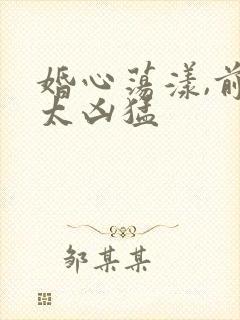 婚心荡漾,前
太凶猛
邹某某